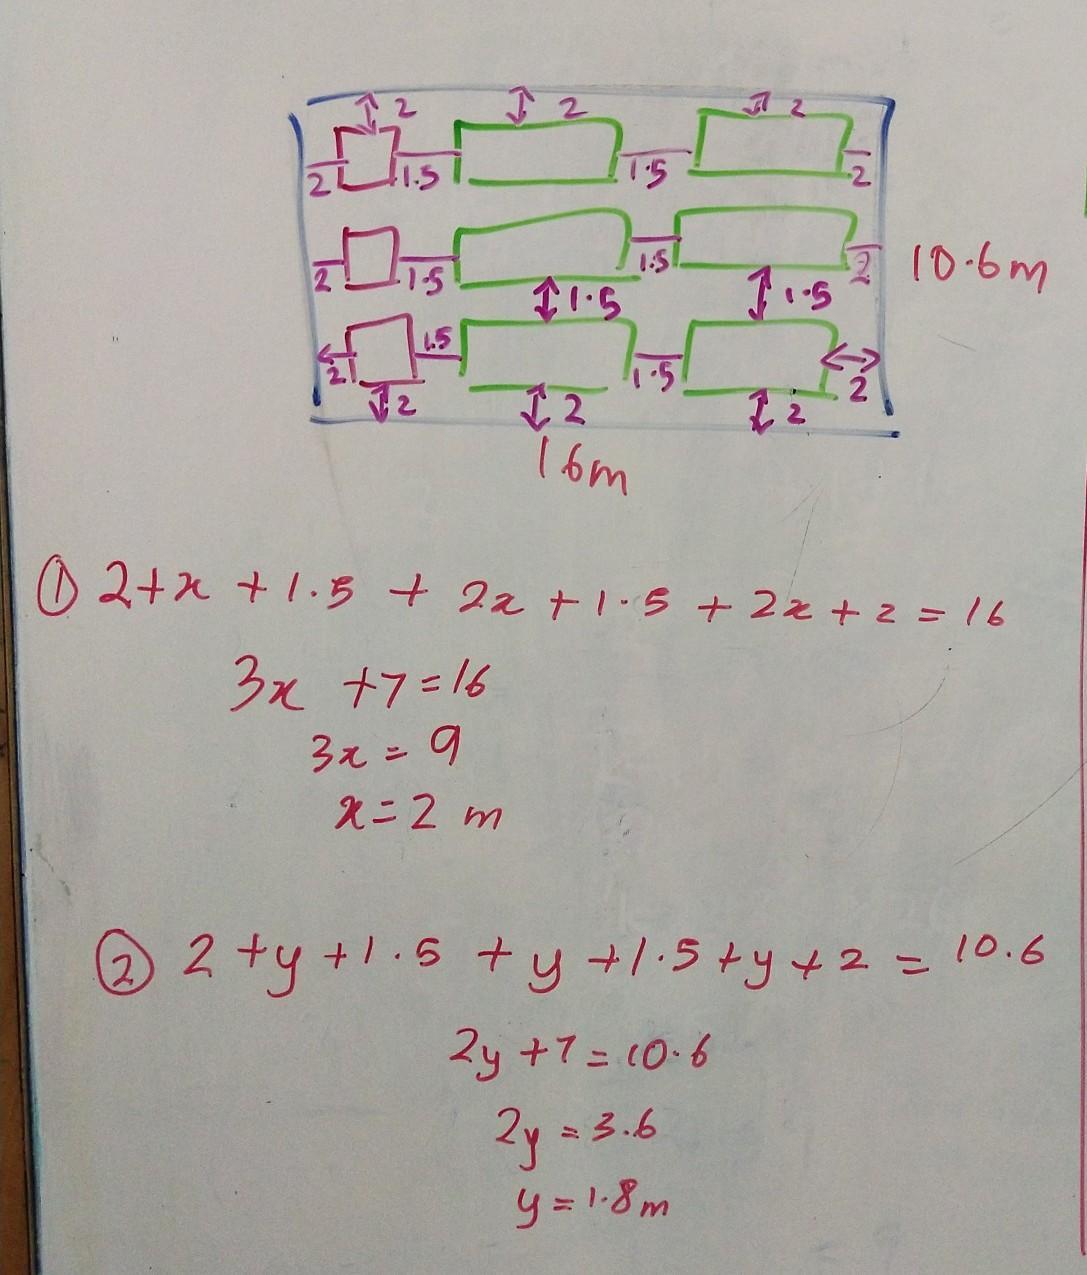 2 2 2
2 1.5 1.5 2
2 1.5 1.5 2
10.6m
1.5 1.5
2 1.5 1.5 2
2 2 2
16m
① 2+x + 1.5 + 2x + 1.5 + 2x + 2 = 16
3x + 7 = 16
3x = 9
x = 2 m
② 2 + y + 1.5 + y + 1.5 + y + 2 = 10.6
2y + 7 = 10.6
2y = 3.6
y = 1.8m